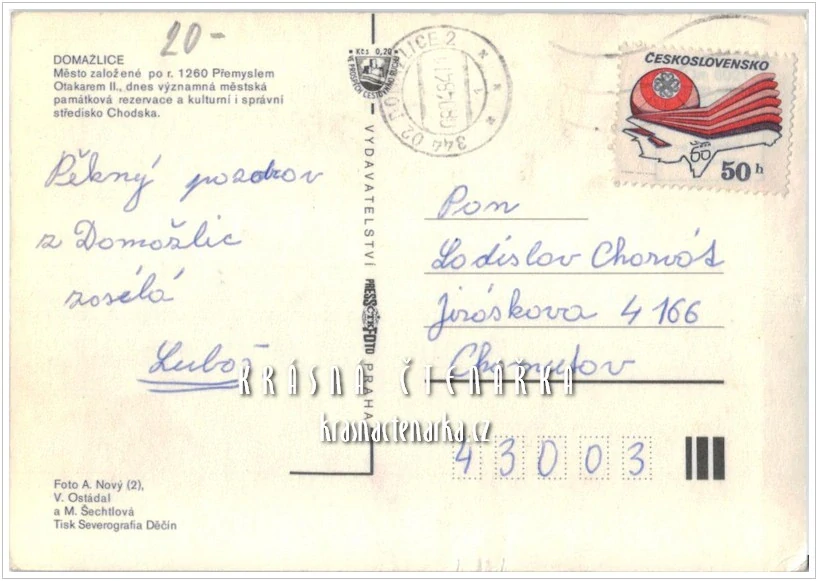 20-
DOMAŽLICE
Město založené po r. 1260 Přemyslem
Otakarem II., dnes významná městská
památková rezervace a kulturní i správní
středisko Chodska.
Pěkný pozdrav
z Domažlic
zasílá
Luboš
Foto A. Nový (2),
V. Ostádal
a M. Šechtlová
Tisk Severografia Děčín
Kčs 0,20
VYDAVATELSTVÍ PRESSFOTO PRAHA
344 02 DOMAŽLICE 2
ČESKOSLOVENSKO
50 h
Pan
Ladislav Charvát
Jiráskova 4166
Chomutov
43003
KRÁSNÁ ČTENÁŘKA
krasnactenarka.cz